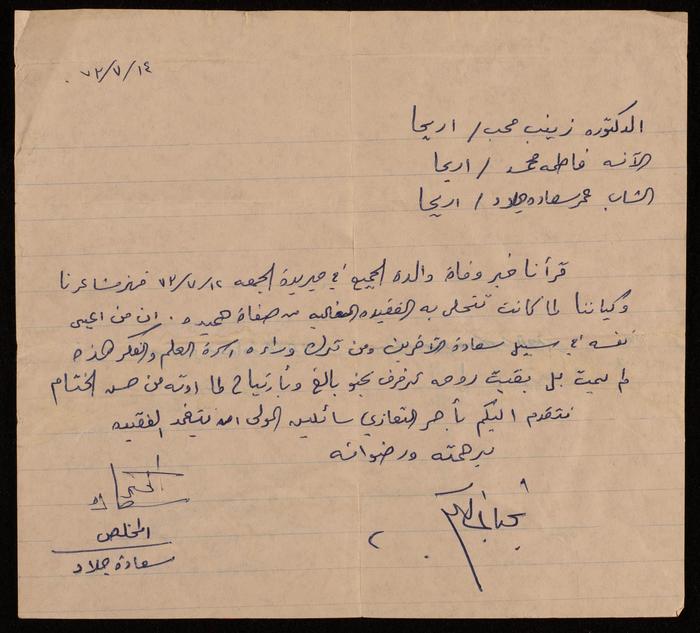 ٧٢/٧/١٤
الدكتوره زينب محب / اريحا
الآنسه فاطمه محمد / اريحا
الشاب عمر سعاده جلاد / اريحا
قرأنا خبر وفاة والدة الجميع في جريدة الجمعه ٧٢/٧/١٢ فهز مشاعرنا
وكياننا لما كانت تتحلى به الفقيده الغاليه من صفاة حميده . ان من اعيى
نفسه في سبيل سعادة الآخرين ومن ترك وراءه اسرة العلم والفكر هذه
لم يمت بل بقيت روحه ترفرف بحنو بالغ وبأرتياح لما ادته من حسن الختام
نتقدم اليكم بأحر التعازي سائلين المولى ان يتغمد الفقيده
برحمته ورضوانه
المخلص
سعادة جلاد